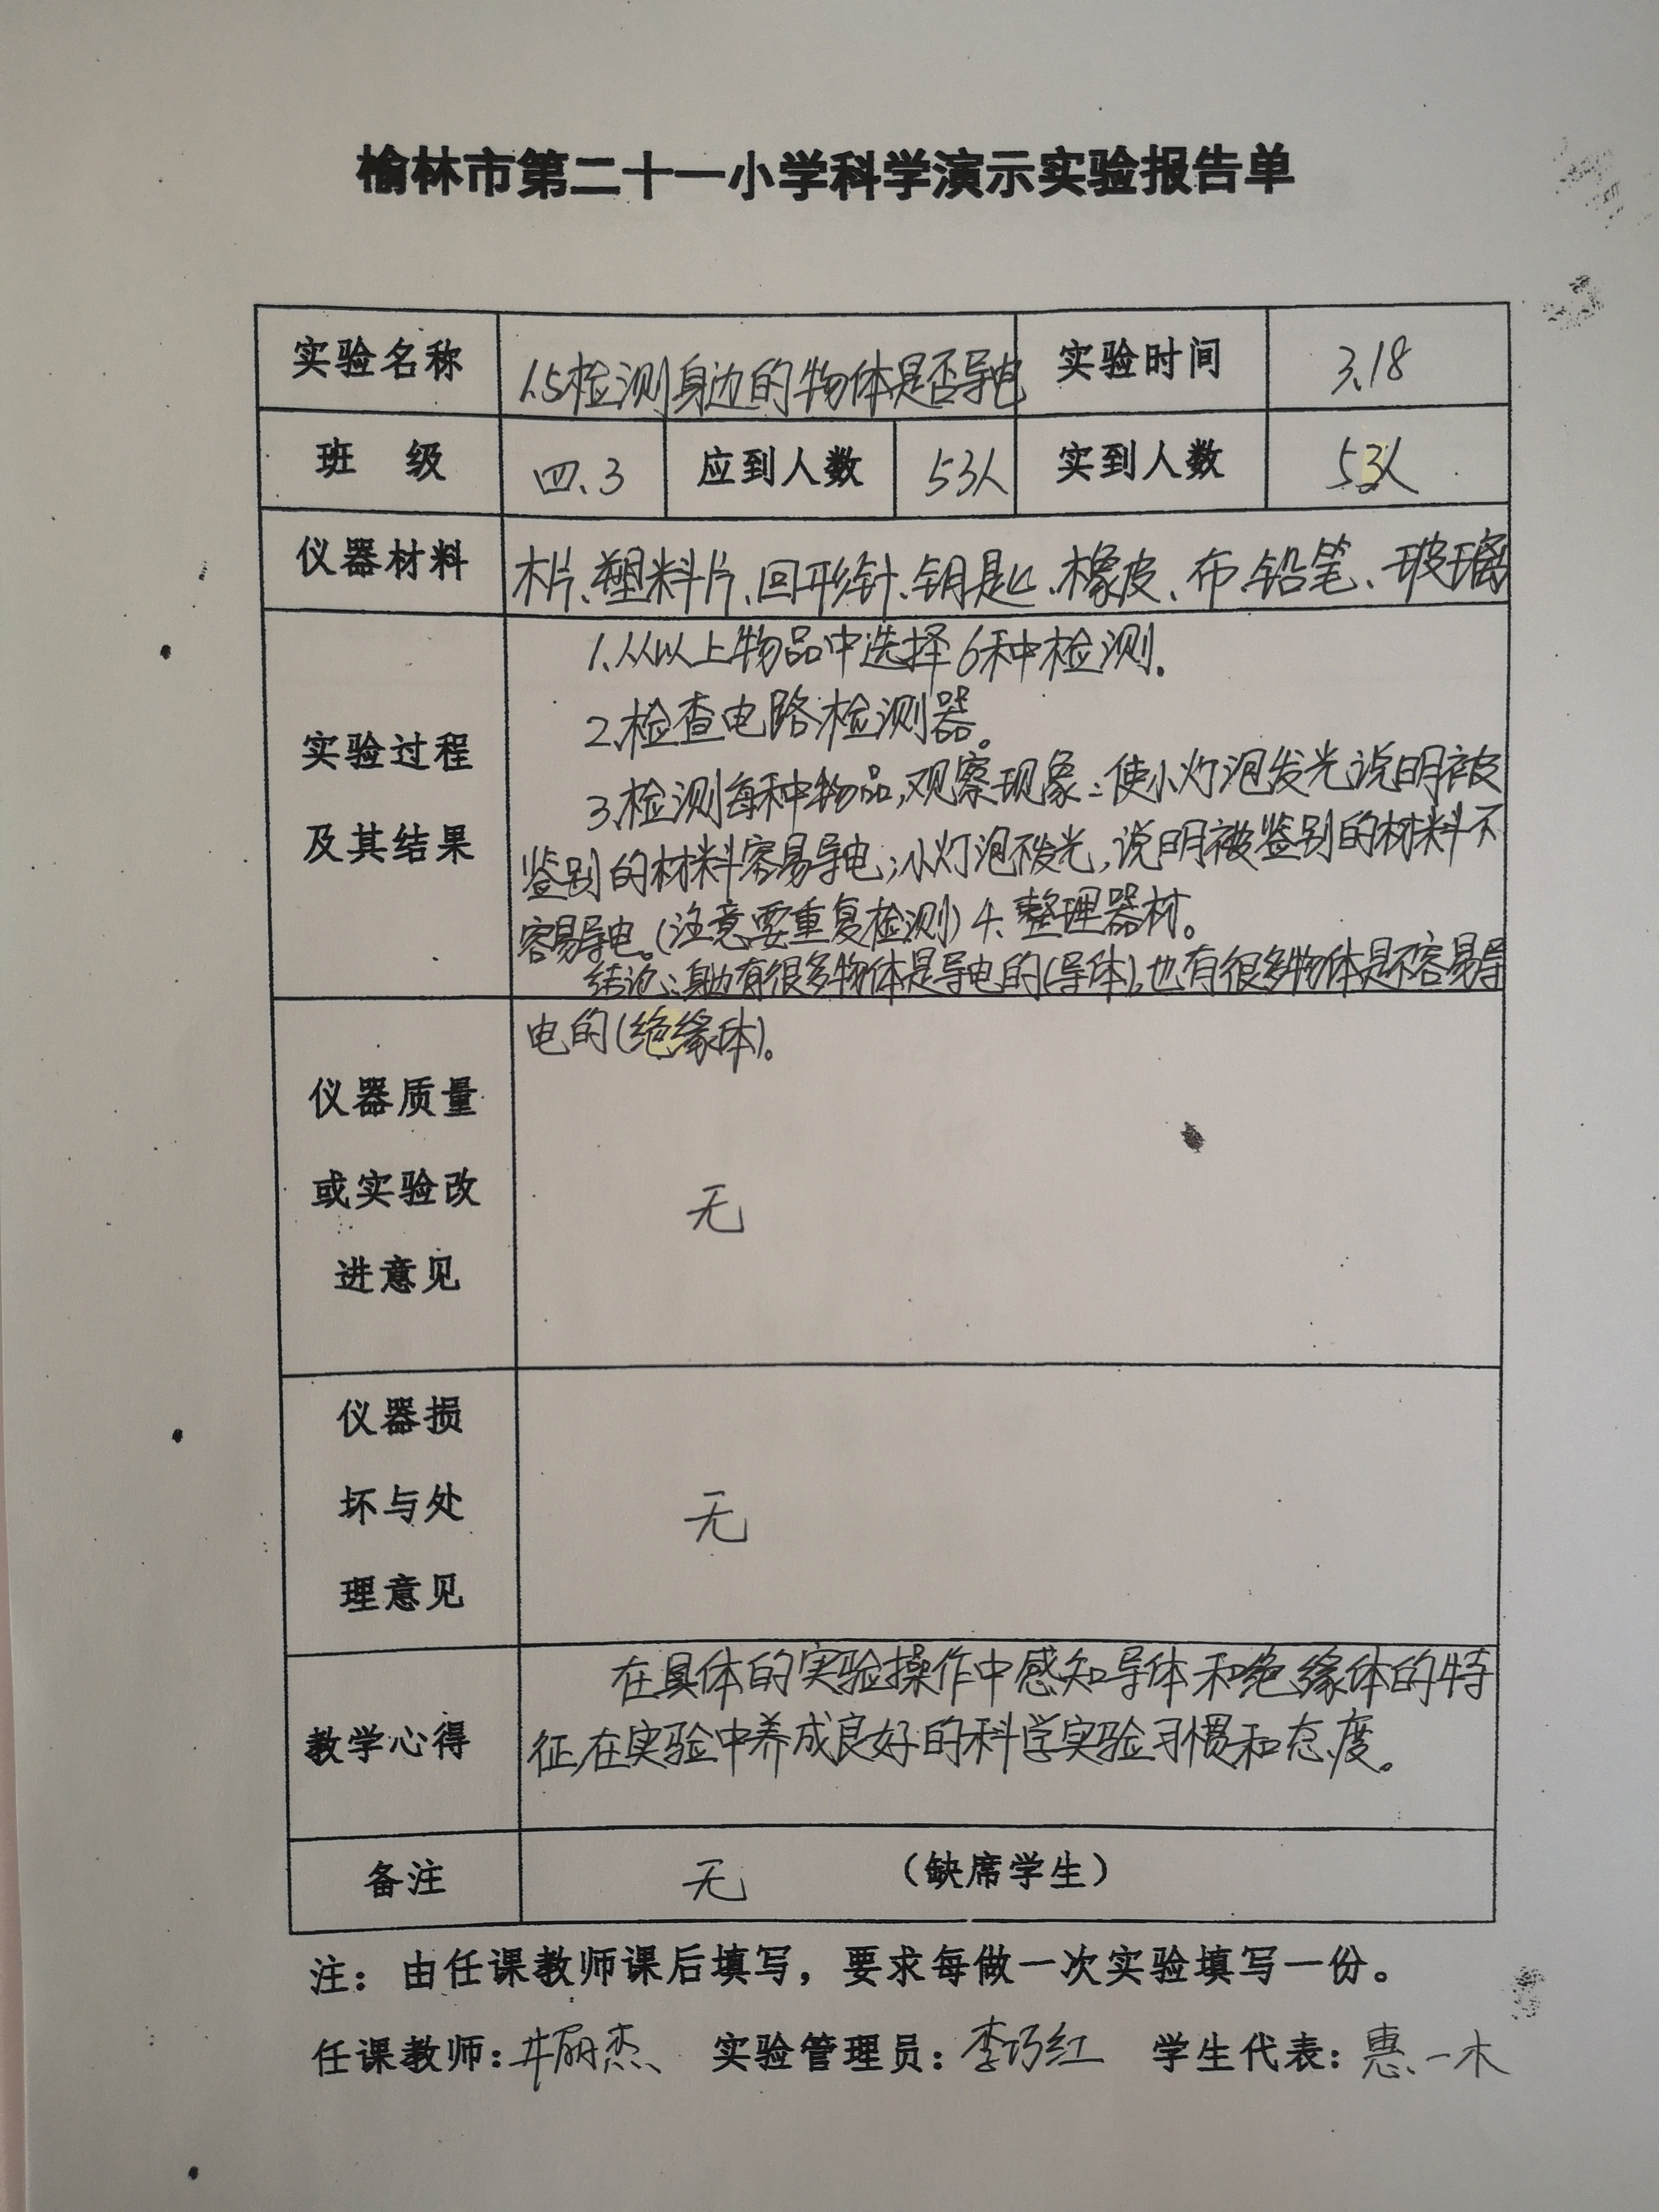 榆林市第二十一小学科学演示实验报告单
实验名称 1.5检测身边的物体是否导电 实验时间 3.18
班 级 四.3 应到人数 53人 实到人数 53人
仪器材料 木片、塑料片、回形针、钥匙、橡皮、布、铅笔、玻璃
实验过程
及其结果
1.从以上物品中选择6种检测.
2.检查电路检测器。
3.检测每种物品,观察现象:使小灯泡发光说明被
鉴别的材料容易导电;小灯泡不发光,说明被鉴别的材料不
容易导电。(注意要重复检测)4.整理器材。
结论:身边有很多物体是导电的(导体),也有很多物体是不容易导
电的(绝缘体)。
仪器质量
或实验改
进意见
无
仪器损
坏与处
理意见
无
教学心得
在具体的实验操作中感知导体和绝缘体的特
征,在实验中养成良好的科学实验习惯和态度。
备注 无 (缺席学生)
注:由任课教师课后填写,要求每做一次实验填写一份。
任课教师:井丽杰 实验管理员:李巧红 学生代表:惠一木